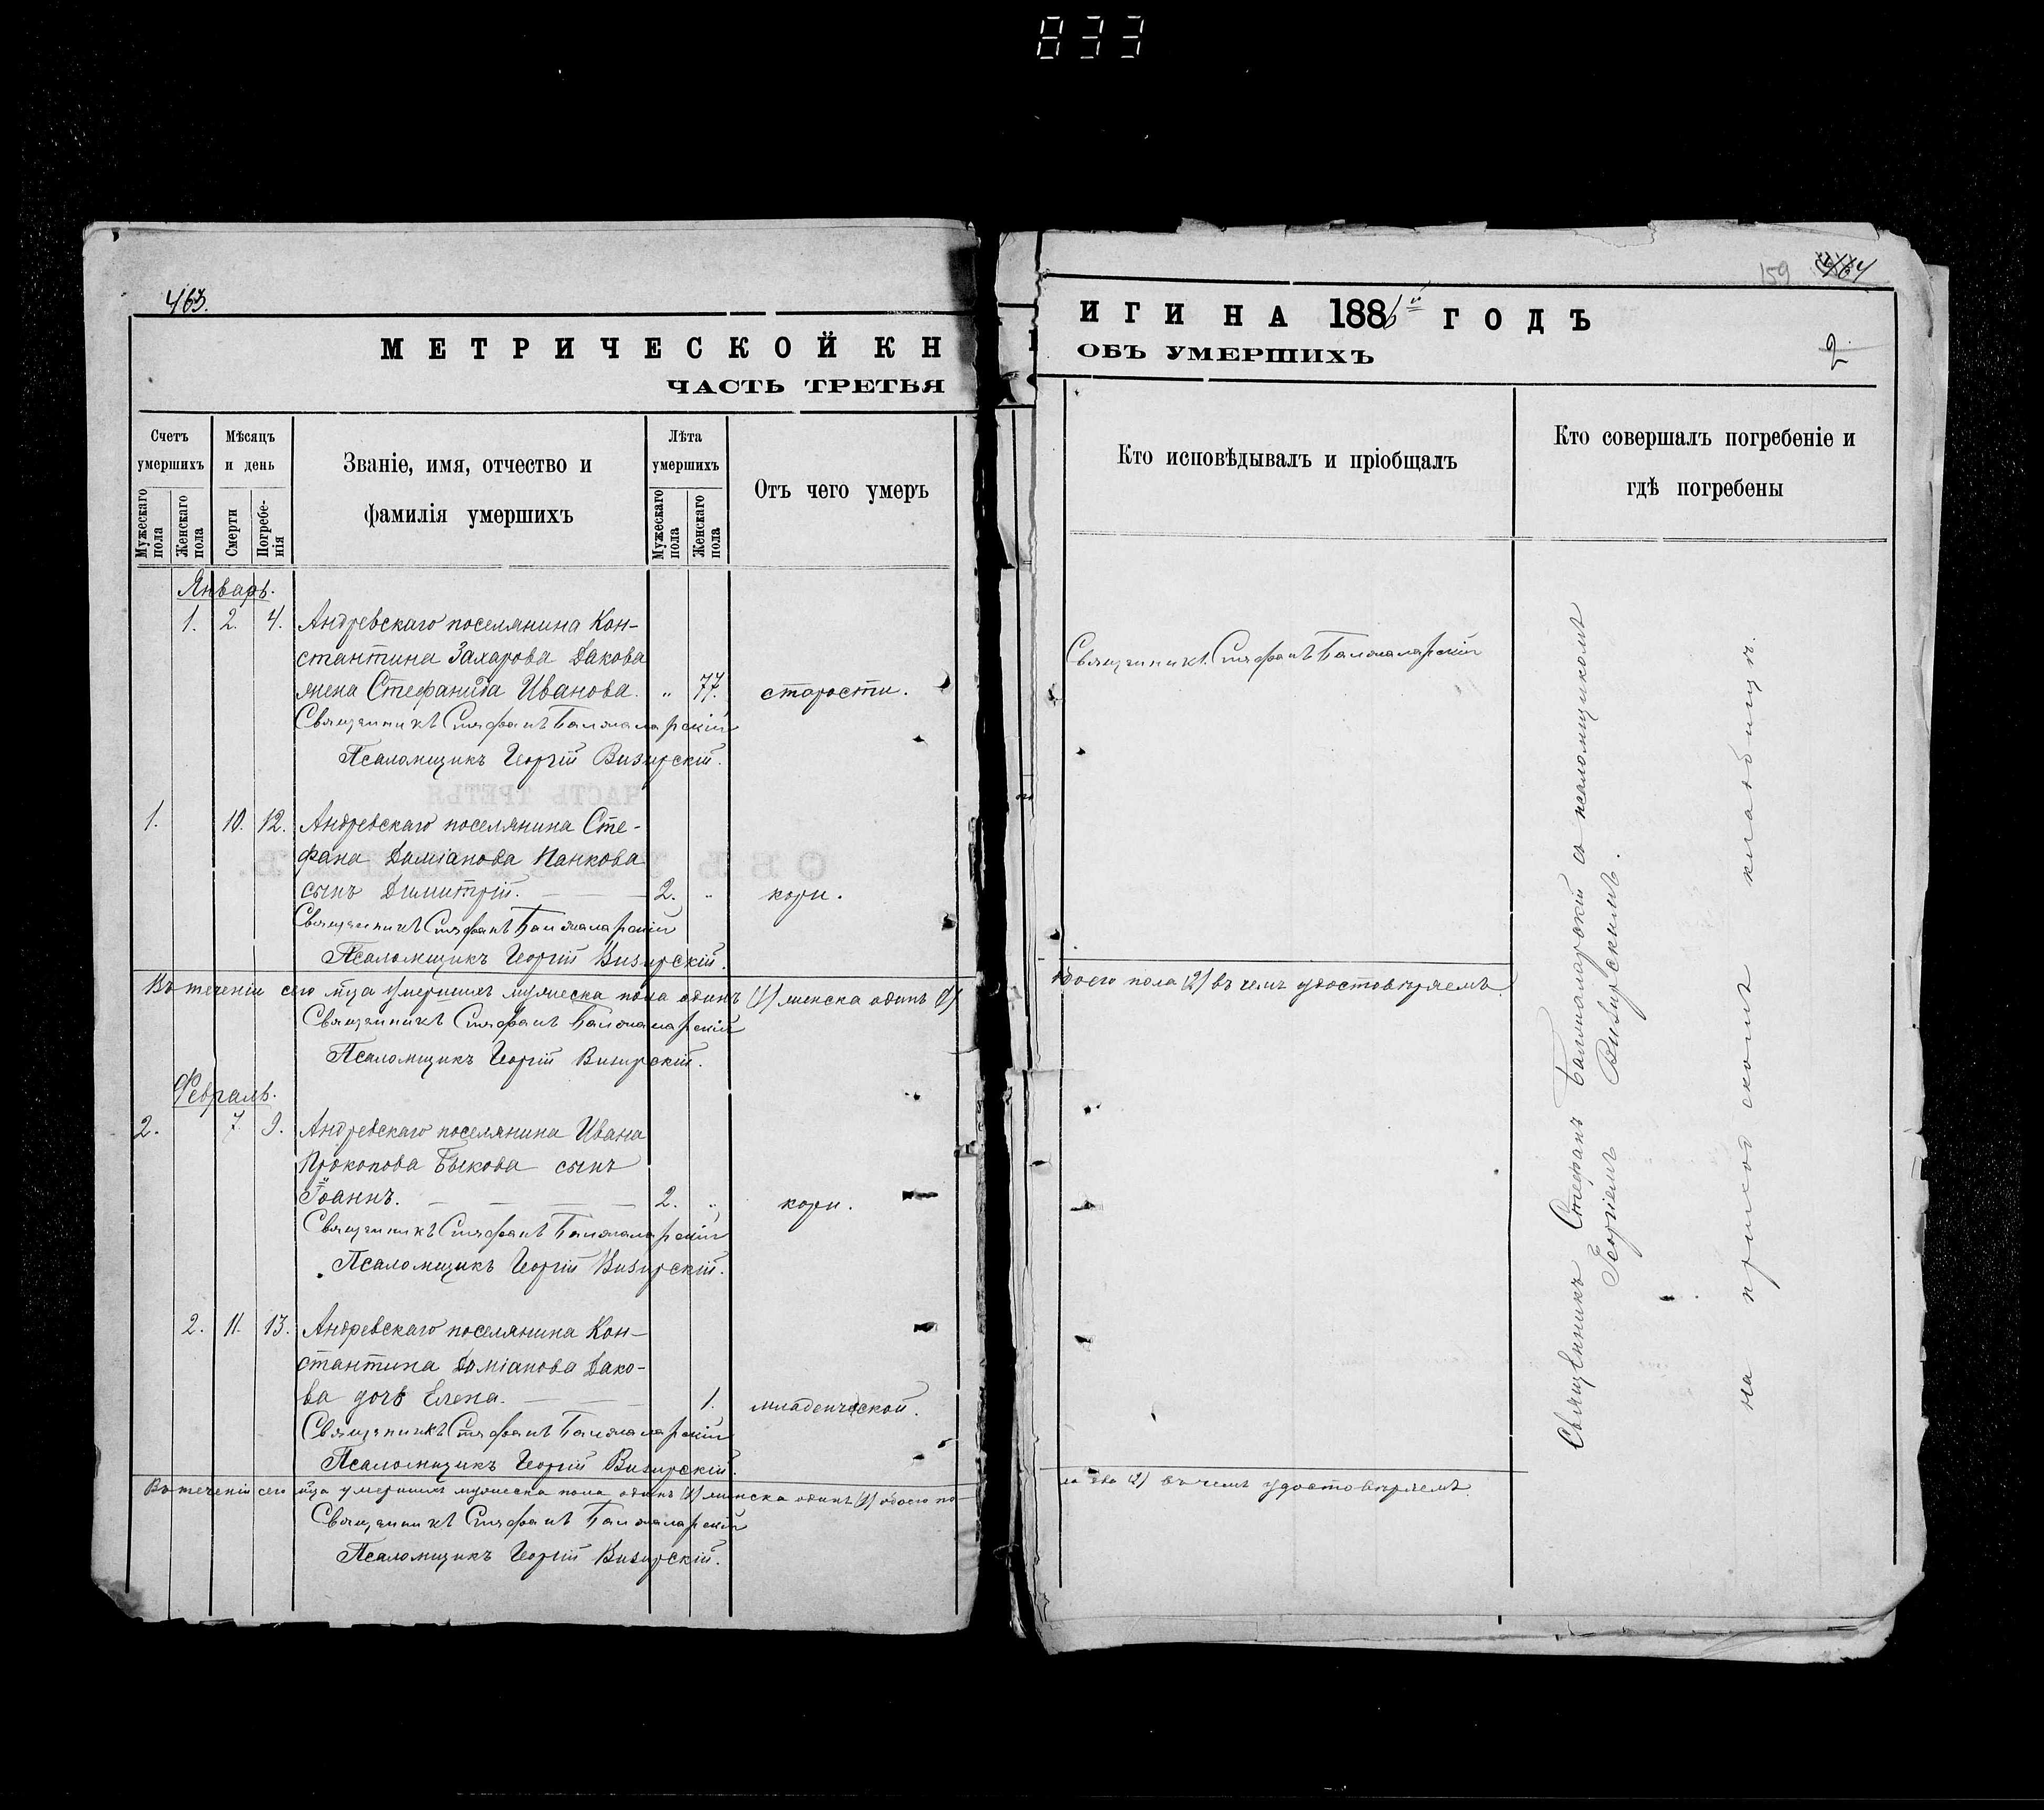 833
463.
МЕТРИЧЕСКОЙ КН
ЧАСТЬ ТРЕТЬЯ
Счетъ умершихъ
Мужескаго пола
Женскаго пола
Мѣсяцъ и день
Смерти
Погребе-
нія
Званіе, имя, отчество и
фамилія умершихъ
Лѣта умершихъ
Мужескаго пола
Женскаго пола
Отъ чего умеръ
Январь.
1. 2. 4. Андревскаго поселянина Кон-
стантина Захарова Дакова
жена Стефанида Иванова. „ 77. старости.
Священникъ Стефанъ Балжаларскій
Псаломщикъ Георгій Визирскій.
1. 10. 12. Андревскаго поселянина Сте-
фана Даміанова Панкова
сынъ Димитрій. 2. „ кори.
Священникъ Стефанъ Балжаларскій
Псаломщикъ Георгій Визирскій.
Въ теченіи сего м-ца умершихъ мужеска пола одинъ (1) женска одинъ (1)
Священникъ Стефанъ Балжаларскій
Псаломщикъ Георгій Визирскій.
Февраль.
2. 7. 9. Андревскаго поселянина Ивана
Прокопова Быкова сынъ
Іоаннъ. 2. „ кори.
Священникъ Стефанъ Балжаларскій
Псаломщикъ Георгій Визирскій.
2. 11. 13. Андревскаго поселянина Кон-
стантина Даміанова Дако-
ва дочь Елена. 1. младенческой.
Священникъ Стефанъ Балжаларскій
Псаломщикъ Георгій Визирскій.
Въ теченіи сего м-ца умершихъ мужеска пола одинъ (1) женска одинъ (1) обоего по-
Священникъ Стефанъ Балжаларскій
Псаломщикъ Георгій Визирскій.
159 464
ИГИ НА 1886й ГОДЪ
ОБЪ УМЕРШИХЪ
2
Кто исповѣдывалъ и пріобщалъ
Кто совершалъ погребеніе и
гдѣ погребены
Священникъ Стефанъ Балжаларскій
обоего пола (2) въ чемъ удостовѣряемъ.
ла два (2) въ чемъ удостовѣряемъ.
Священникъ Стефанъ Балжаларскій съ псаломщикомъ
Георгіемъ Визирскимъ.
на приходскомъ кладбищѣ.